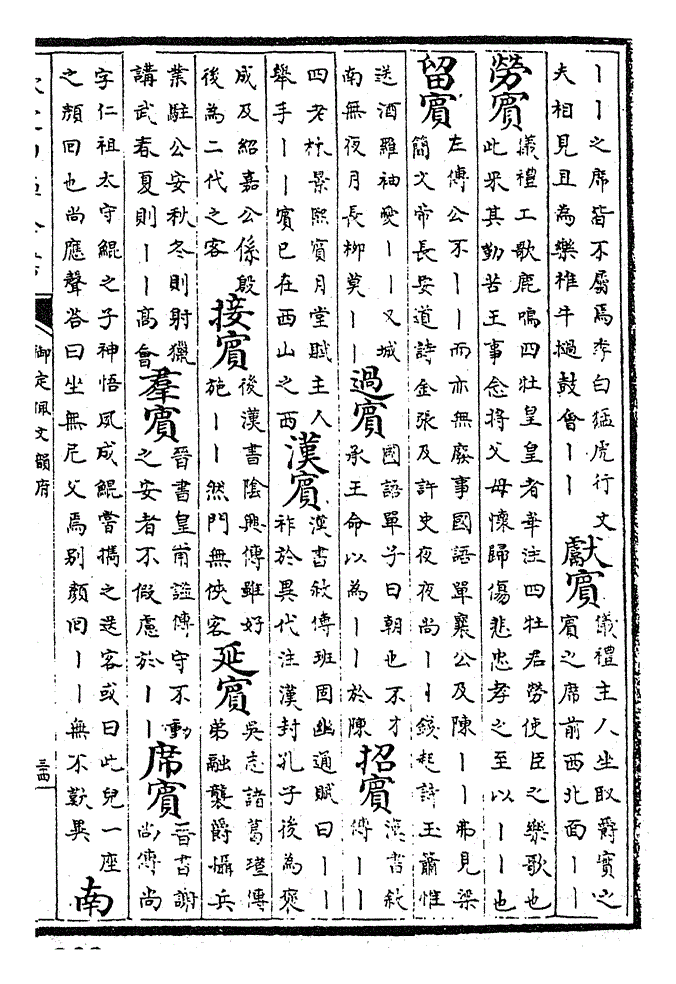 丨丨之席皆不屬焉李白猛虎行丈
夫相見且為樂椎牛撾鼓會丨丨
獻賓
儀禮主人坐取爵實之
賓之席前西北面丨丨
勞賓
儀禮工歌鹿鳴四牡皇皇者華注四牡君勞使臣之樂歌也
此采其勤苦王事念將父母懷歸傷悲忠孝之至以丨丨也
留賓
左傳公不丨丨而亦無廢事國語單襄公及陳丨丨弗見梁
簡文帝長安道詩金張及許史夜夜尚丨丨錢起詩玉簫惟
送酒羅袖愛丨丨又城
南無夜月長柳莫丨丨
過賓
國語單子曰朝也不才
承王命以為丨丨於陳
招賓
漢書敘
傳丨丨
四老林景熙賓月堂賦主人
舉手丨丨賓已在西山之西
漢賓
漢書敘傳班固幽通賦曰丨丨
祚於異代注漢封孔子後為褒
成及紹嘉公係殷
後為二代之客
接賓
後漢書陰興傳雖好
施丨丨然門無俠客
延賓
吳志諸葛瑾傳
弟融襲爵攝兵
業駐公安秋冬則射獵
講武春夏則丨丨高會
羣賓
晉書皇甫謐傳守不動
之安者不假慮於丨丨
席賓
晉書謝
尚傳尚
字仁祖太守鯤之子神悟夙成鯤嘗攜之送客或曰此兒一座
之顏回也尚應聲答曰坐無尼父焉別顏回丨丨無不歎異
南
御定佩文韻府
三四